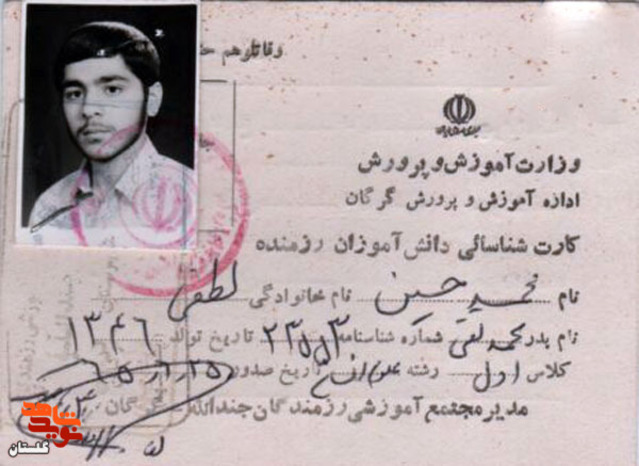 وقاتلوهم
جمهوری اسلامی ایران
وزارت آموزش و پرورش
اداره آموزش و پرورش گرگان
کارت شناسائی دانش آموزان رزمنده
نام محمد حسین نام خانوادگی لطفی
نام پدر محمد تقی شماره شناسنامه ۲۳۵۵۳ تاریخ تولد ۱۳۴۶
کلاس اول رشته تاریخ صدور
مدیر مجتمع آموزشی رزمندگان جندالله گرگان
نوید شاهد
گلستان